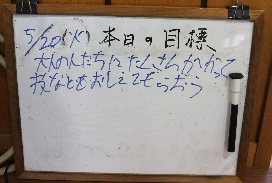 5/20(火)本日の目標
大人の人たちにたくさんかかって
技などをおしえてもらおう